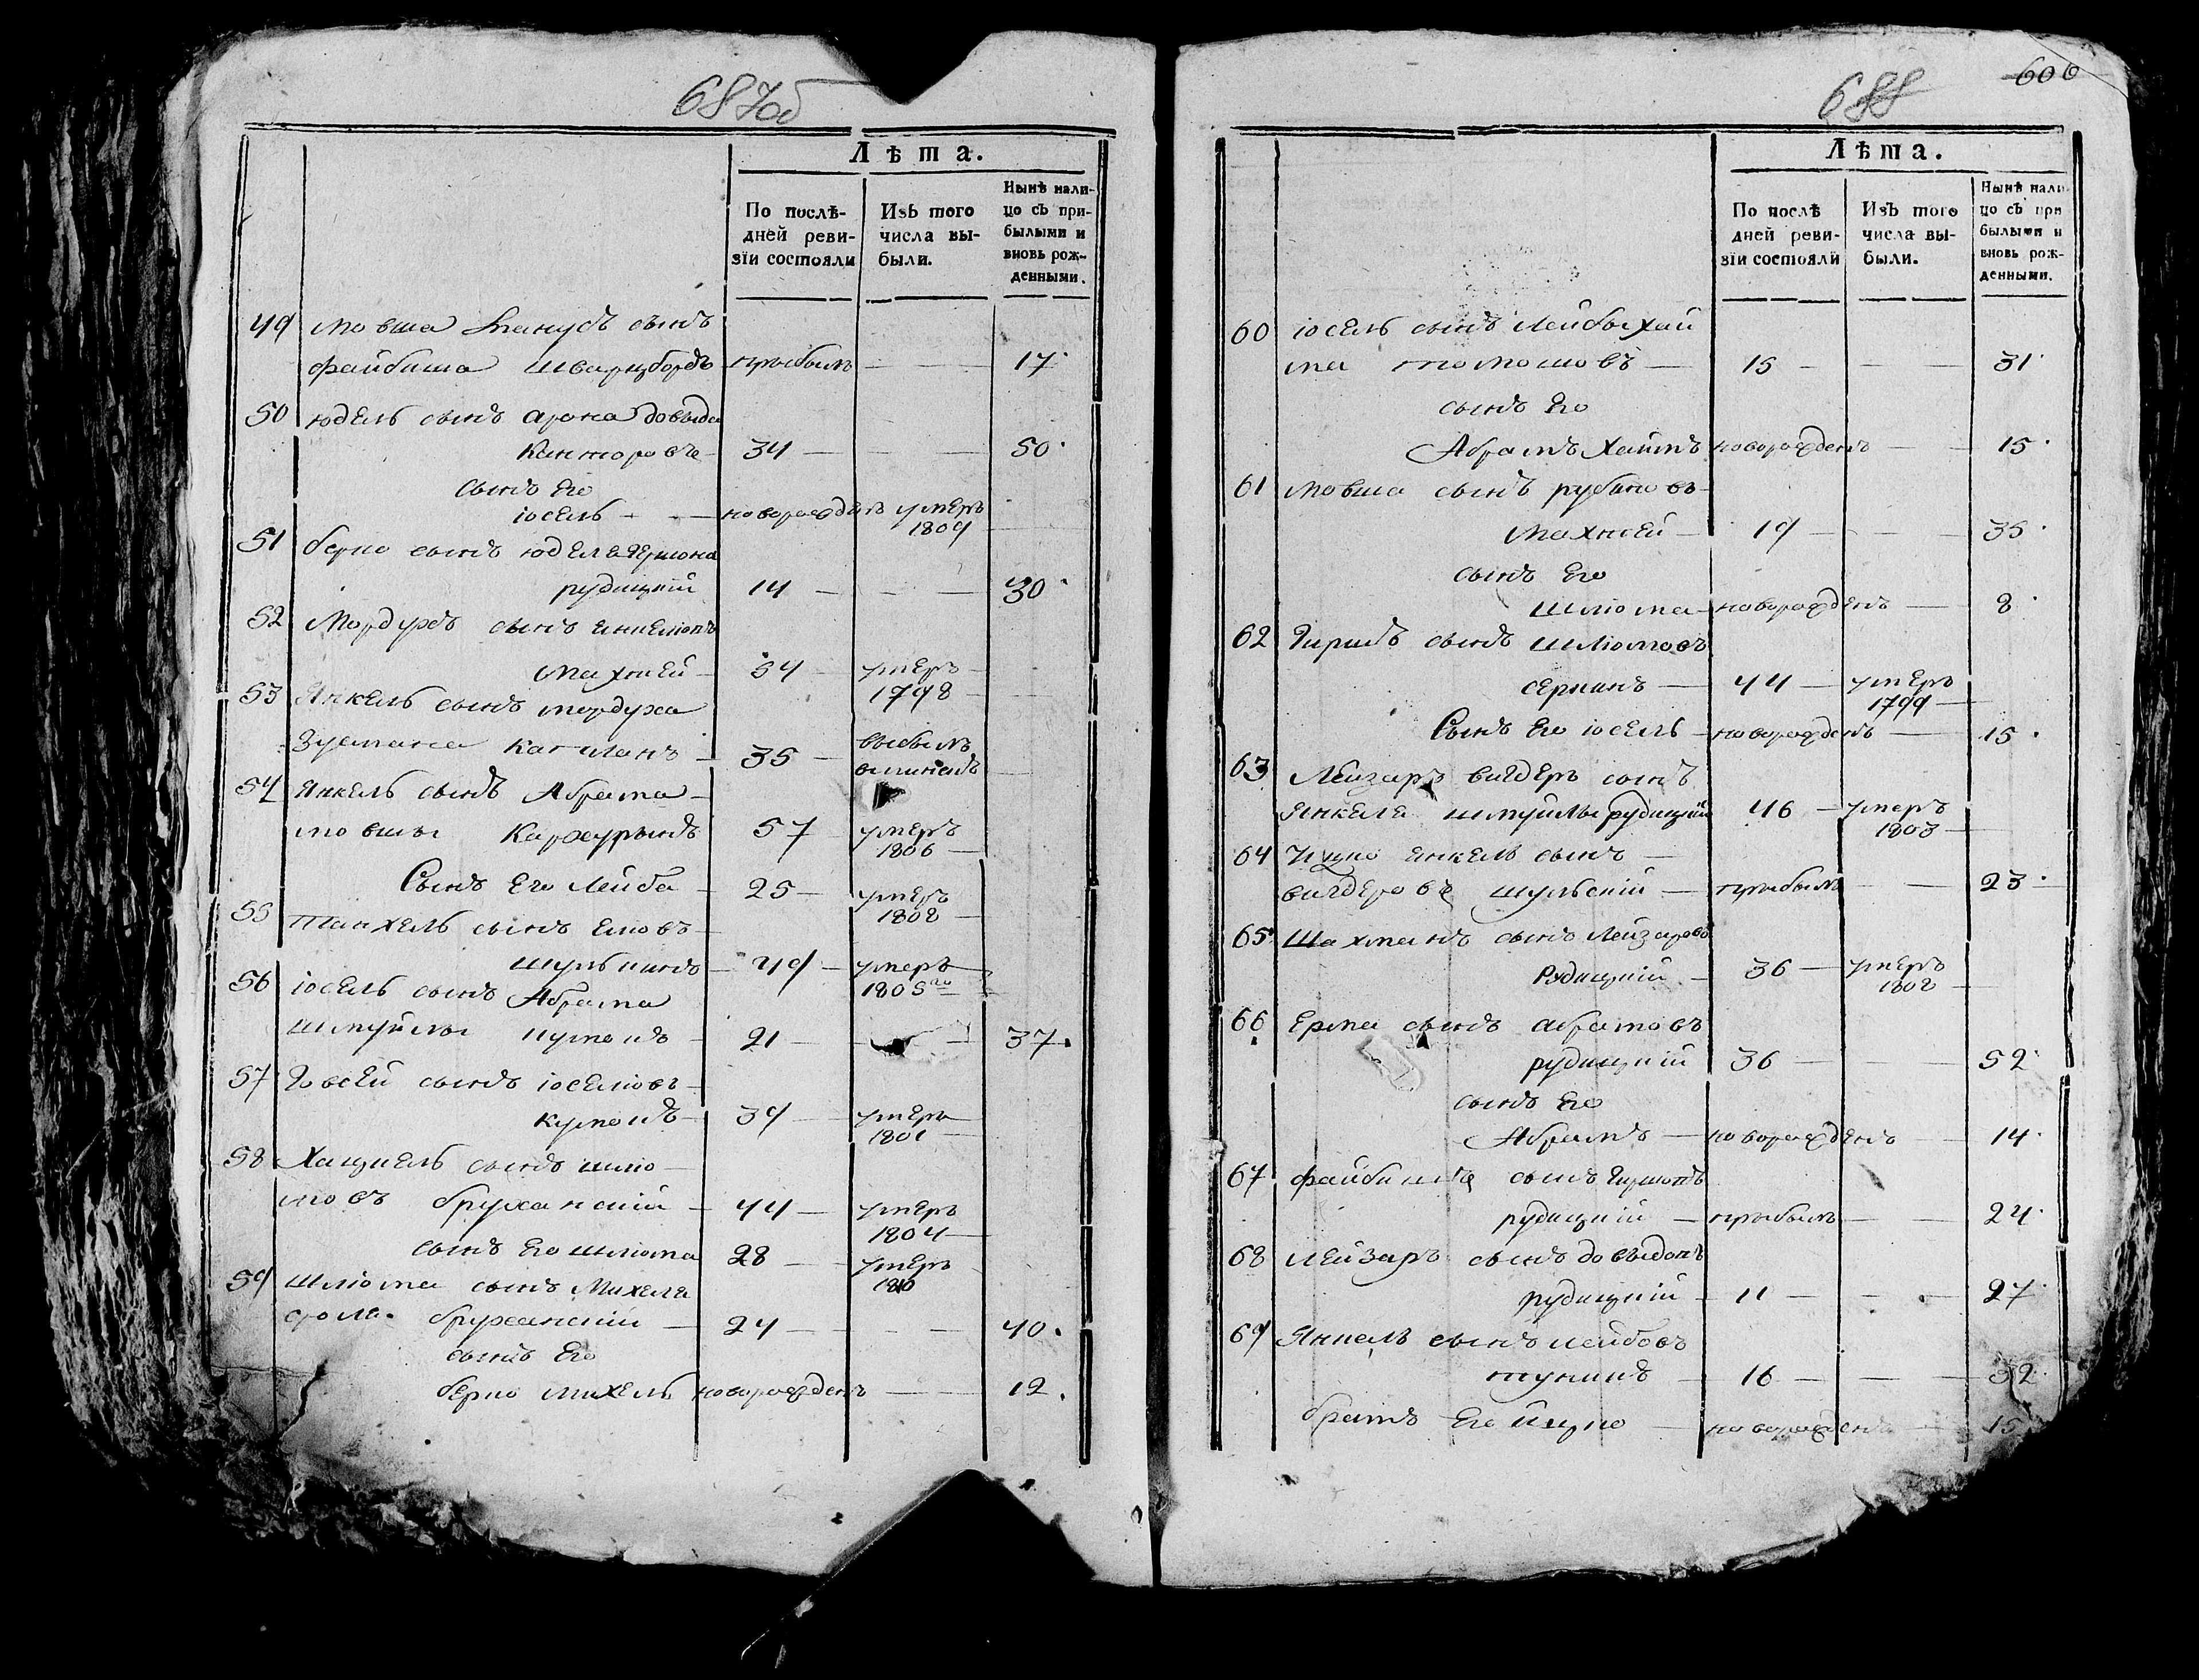 687об
Лѣта.
По послѣ-
дней реви-
зїи состояли
Изъ того
числа вы-
были.
Нынѣ нали-
цо съ при-
былыми и
вновь рож-
денными.
49 Мовша Танусъ сынъ
файбиша Шварцбордъ прыбылъ — — 17
50 юдель сынъ арона довыда
Канторовъ 34 — — — 50
сынъ Его
іосель — — новорожденъ умеръ
1809
51 берко сынъ юделя Гершона
рудицкій 14 — — — 30
52 Мордухъ сынъ
Махлей 54 умеръ
1798
53 Янкель сынъ мордуха
Зусмана Капланъ 35 — выбылъ
54 Янкель сынъ Абрама —
мовшы 57 умеръ
1806 —
Сынъ Его Лейба — 25 — умеръ
1808 —
55 Танхель сынъ
Шулькинъ — 49 — умеръ
1805го
56 іосель сынъ Абрама
Шмуйлы 21 — — 37
57 Говсей сынъ іоселювъ —
39 — умеръ
1801 —
58 Хацкель сынъ шлio —
мовъ бруханскій — 44 — умеръ
1804 —
сынъ Его шлiома 28 — умеръ
1810
59 Шлiома сынъ Михеля
сроля бруханскій — 24 — — — 40
сынъ Его
берко михель новорожденъ — — 12
688
606
Лѣта.
По послѣ
дней реви-
зїи состояли
Изъ того
числа вы-
были.
Нынѣ нали-
цо съ при
былыми и
вновь рож-
денными.
60 іосель сынъ Лейбы хай
ма томошовъ — 15 — — — 31
сынъ Его
Абрамъ Хаимъ новорожденъ — — 15
61 мовша сынъ рубиновъ
Махлей — 19 — — — 35
сынъ Его
Шлiома — новорожденъ — 8
62 Гиршъ сынъ шлiомовъ
44 — умеръ
1799 —
Сынъ Его іосель — новорожденъ — 15
63 Лейзаръ вигдеръ сынъ
Янкеля шмуйлы рудицкій 46 — умеръ
1803 —
64 Ицко янкель сынъ —
вигдеровъ шульскій — прыбылъ — — 23
65 Шахманъ сынъ Лейзаровъ
Рудицкій — 36 — умеръ
1808 —
66 Ерма сынъ абрамовъ
рудицкій 36 — — — 52
сынъ Его
Абрамъ — новорожденъ — 14
67 файбишъ сынъ Гиршовъ
рудицкій — прыбылъ — — 24
68 Лейзаръ сынъ довыдовъ
рудицкій — 11 — — — 27
69 Янкель сынъ лейбовъ
тункинъ — 16 — — — 32
братъ Его йцко — новорожденъ — 15